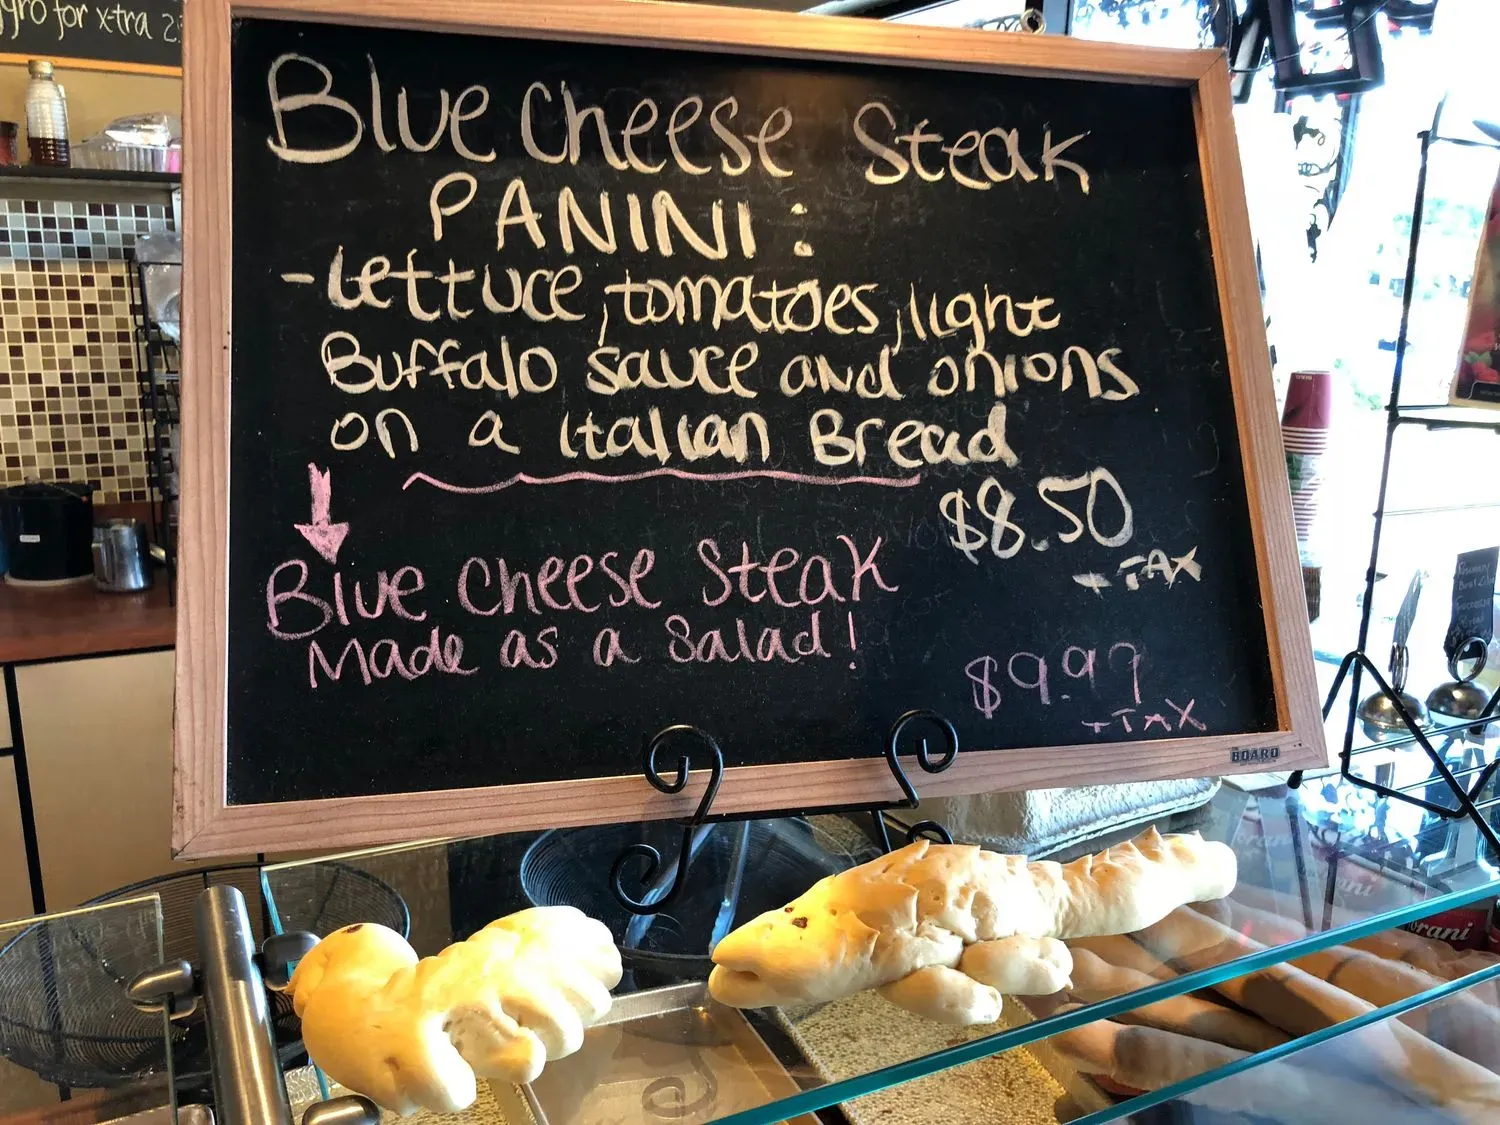 gyro for x-tra 2
Blue Cheese Steak
PANINI:
-Lettuce, tomatoes, light
Buffalo sauce and onions
on a Italian Bread
$8.50
+ TAX
Blue Cheese Steak
Made as a Salad!
$9.99
+ TAX
BOARD
rani